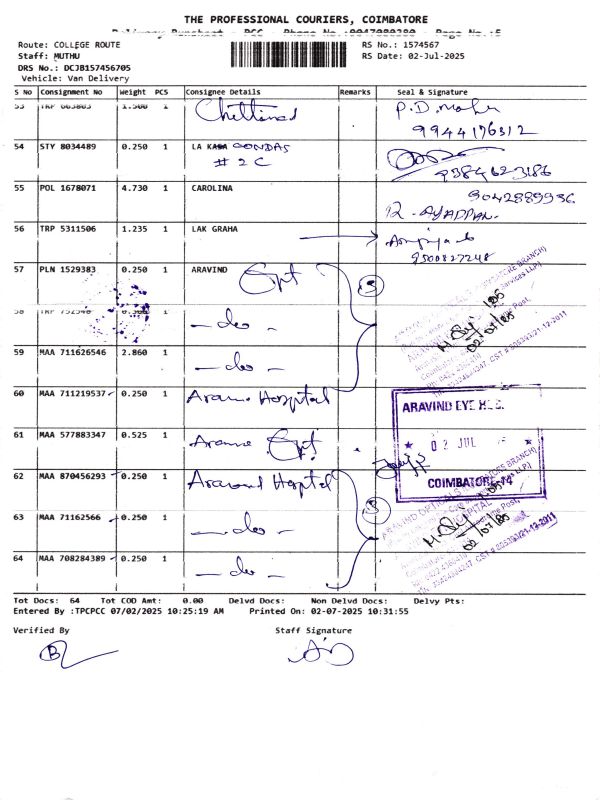 THE PROFESSIONAL COURIERS, COIMBATORE
Delivery Runsheet - PCC - Phone No :0047080380 - Page No :5
Route: COLLEGE ROUTE
RS No.: 1574567
Staff: MUTHU
RS Date: 02-Jul-2025
DRS No.: DCJB157456705
Vehicle: Van Delivery
S No Consignment No Weight PCS Consignee Details Remarks Seal & Signature
53 TRP 663803 1.500 1 Chettinad P.D. 9944176312
54 STY 8034489 0.250 1 LA KASA OONDAS 9384623186
# 2 C
55 POL 1678071 4.730 1 CAROLINA 9042889936
R. AYAPPAN.
56 TRP 5311506 1.235 1 LAK GRAHA
9500827248
57 PLN 1529383 0.250 1 ARAVIND Opt
58 TRP 752540 0.300 1 — do —
59 MAA 711626546 2.860 1 — do —
60 MAA 711219537 0.250 1 Hospital
61 MAA 577883347 0.525 1 Opt
62 MAA 870456293 0.250 1 Aravind Hospital
63 MAA 71162566 0.250 1 — do —
64 MAA 708284389 0.250 1 — do —
02/07/25
ARAVIND EYE HOS.
★ 02 JUL ★
COIMBATORE-14
ARAVIND OPTICALS
02/07/25
Tot Docs: 64 Tot COD Amt: 0.00 Delvd Docs: Non Delvd Docs: Delvy Pts:
Entered By :TPCPCC 07/02/2025 10:25:19 AM Printed On: 02-07-2025 10:31:55
Verified By Staff Signature